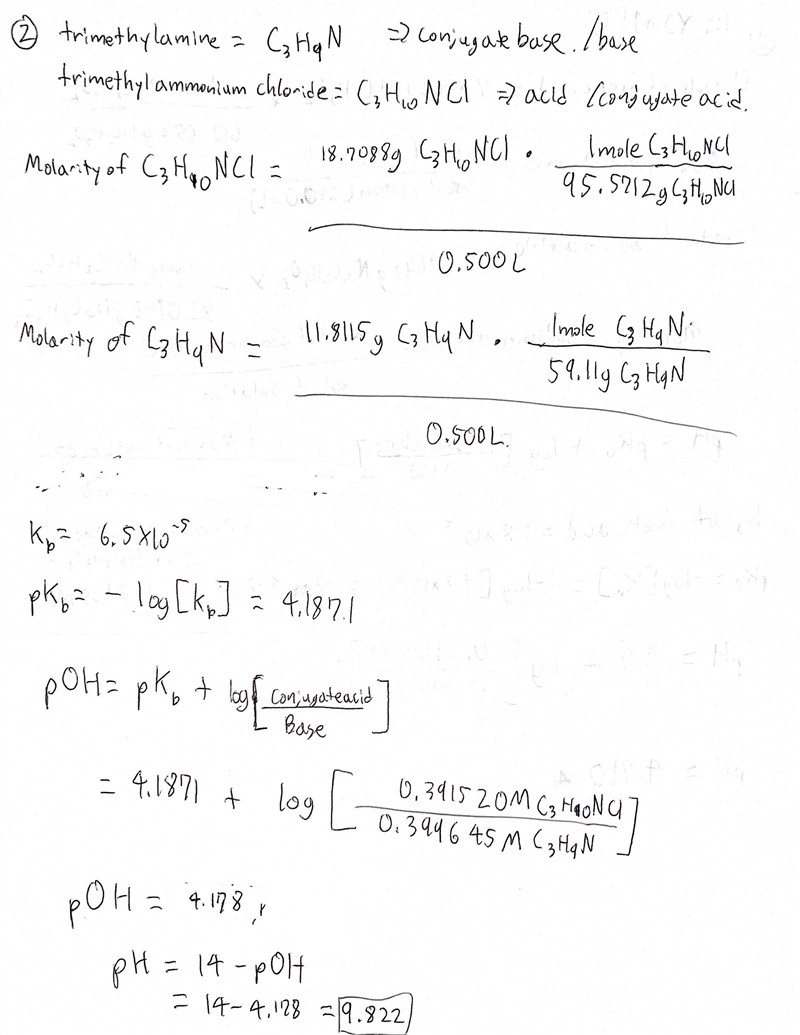 ② trimethylamine = C₃H₉N ⇒ conjugate base. /base
trimethyl ammonium chloride = C₃H₁₀NCl ⇒ acid /conjugate acid.
Molarity of C₃H₁₀NCl = 18.7088g C₃H₁₀NCl • 1mole C₃H₁₀NCl
95.5712g C₃H₁₀NCl
0.500L
Molarity of C₃H₉N = 11.8115g C₃H₉N • 1mole C₃H₉N
59.11g C₃H₉N
0.500L.
Kb = 6.5×10⁻⁵
pKb = - log[kb] = 4.1871
pOH = pKb + log[Conjugate acid
Base]
= 4.1871 + log [0.391520M C₃H₁₀NCl
0.399645M C₃H₉N]
pOH = 4.178
pH = 14 - pOH
= 14-4.178 = 9.822